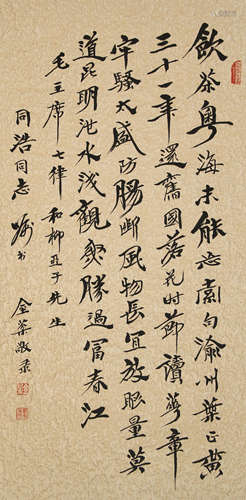 飲茶粤海未能忘索句渝州葉正黄
三十一年還舊國落花时節讀華章
牢騷太盛防腸断風物長宜放眼量莫
道昆明池水浅觀魚勝過富春江
毛主席七律和柳亞子先生
同浩同志嘱书
金葉敬录